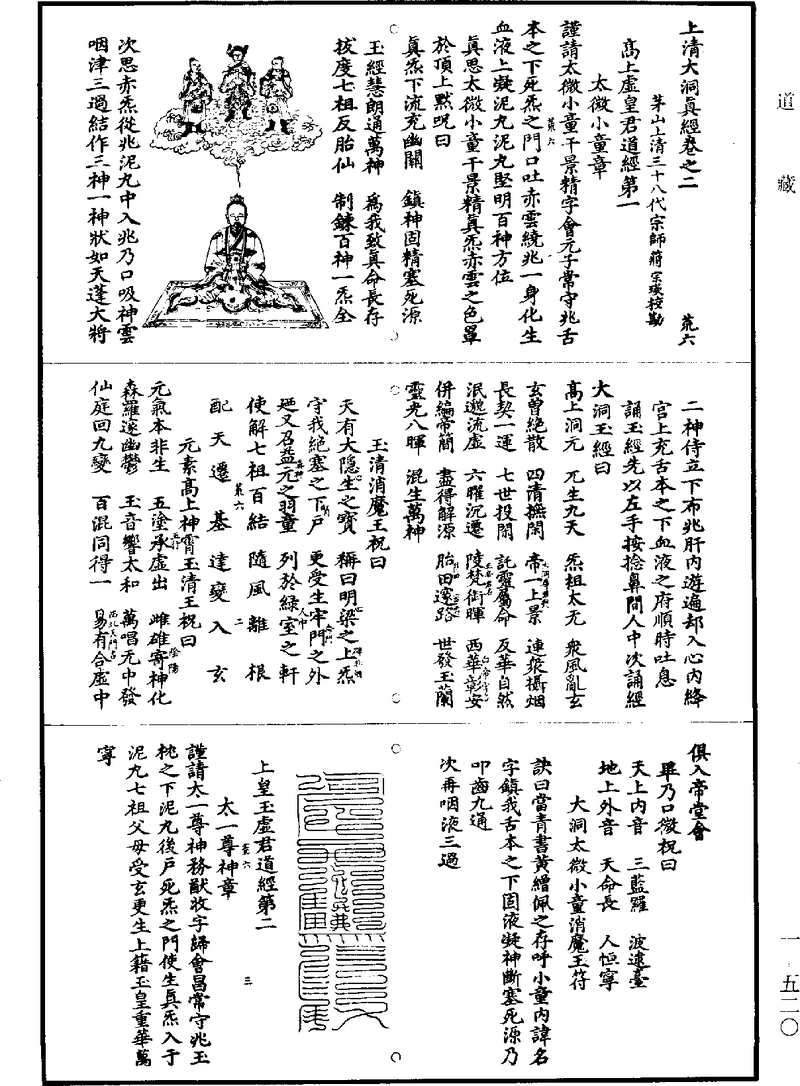 道藏
上清大洞真經卷之二 荒六
茅山上清三十八代宗師蔣宗瑛校勘
高上虛皇君道經第一
太微小童章
謹請太微小童干景精字會元子常守兆舌
本之下死炁之門口吐赤雲繞兆一身化生
血液上凝泥丸泥丸堅明百神方位
真思太微小童干景精真炁赤雲之色罩
於頂上默呪曰
真炁下流充幽關 鎮神固精塞死源
玉經慧朗通萬神 為我致真命長存
拔度七祖反胎仙 制鍊百神一炁全
次思赤炁從兆泥丸中入兆乃口吸神雲
咽津三過結作三神一神狀如天蓬大將
二神侍立下布兆肝內遊遍却入心內絳
宮上充舌本之下血液之府順時吐息
誦玉經先以左手按捻鼻間人中次誦經
大洞玉經曰
高上洞元 兀生九天 炁祖太无 眾風亂玄
玄曾絕散 四清撫閑 帝一上景 連袂攝烟
長契一運 七世投閑 託靈屬命 反華自然
泯邀流虛 六曜沉遷 陵梵街暉 西華彰安
併編帝簡 盡得解源 胎田邃路 世發玉蘭
靈光八暉 混生萬神
玉清消魔王祝曰
天有大隱生之寶 稱曰明梁之上炁
守我絕塞之下戶 更受生牢門之外
廼又召益元之羽童 列於綠室之軒
使解七祖百結 隨風離根
配天遷基達變入玄
荒六 二
元素高上神霄玉清王祝曰
元氣本非生 五塗承虛出 雌雄寄神化
森羅邃幽鬱 玉音響太和 萬唱元中發
仙庭回九變 百混同得一 易有合虛中
俱入帝堂會
畢乃口微祝曰
天上內音 三藍羅 波逮臺
地上外音 天命長 人恒寧
大洞太微小童消魔王符
訣曰當青書黃繒佩之存呼小童內諱名
字鎮我舌本之下固液凝神斷塞死源乃
叩齒九通
次再咽液三過
上皇玉虛君道經第二
荒六 三
太一尊神章
謹請太一尊神務猷收字歸會昌常守兆玉
枕之下泥丸後戶死炁之門使生真炁入于
泥丸七祖父母受玄更生上籍玉皇重華萬
寧
一·五二〇